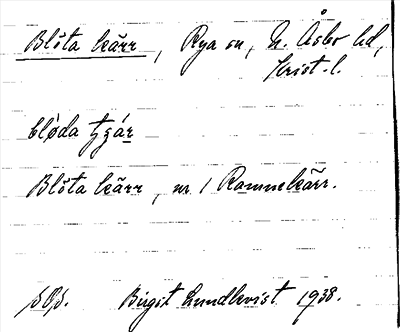 Blöta kärr, Rya sn, N. Åsbo hd,
Krist. l.
blø̀da tȥár
Blöta kärr, nr 1 Rammekärr.
Birgit Lundkvist 1938.